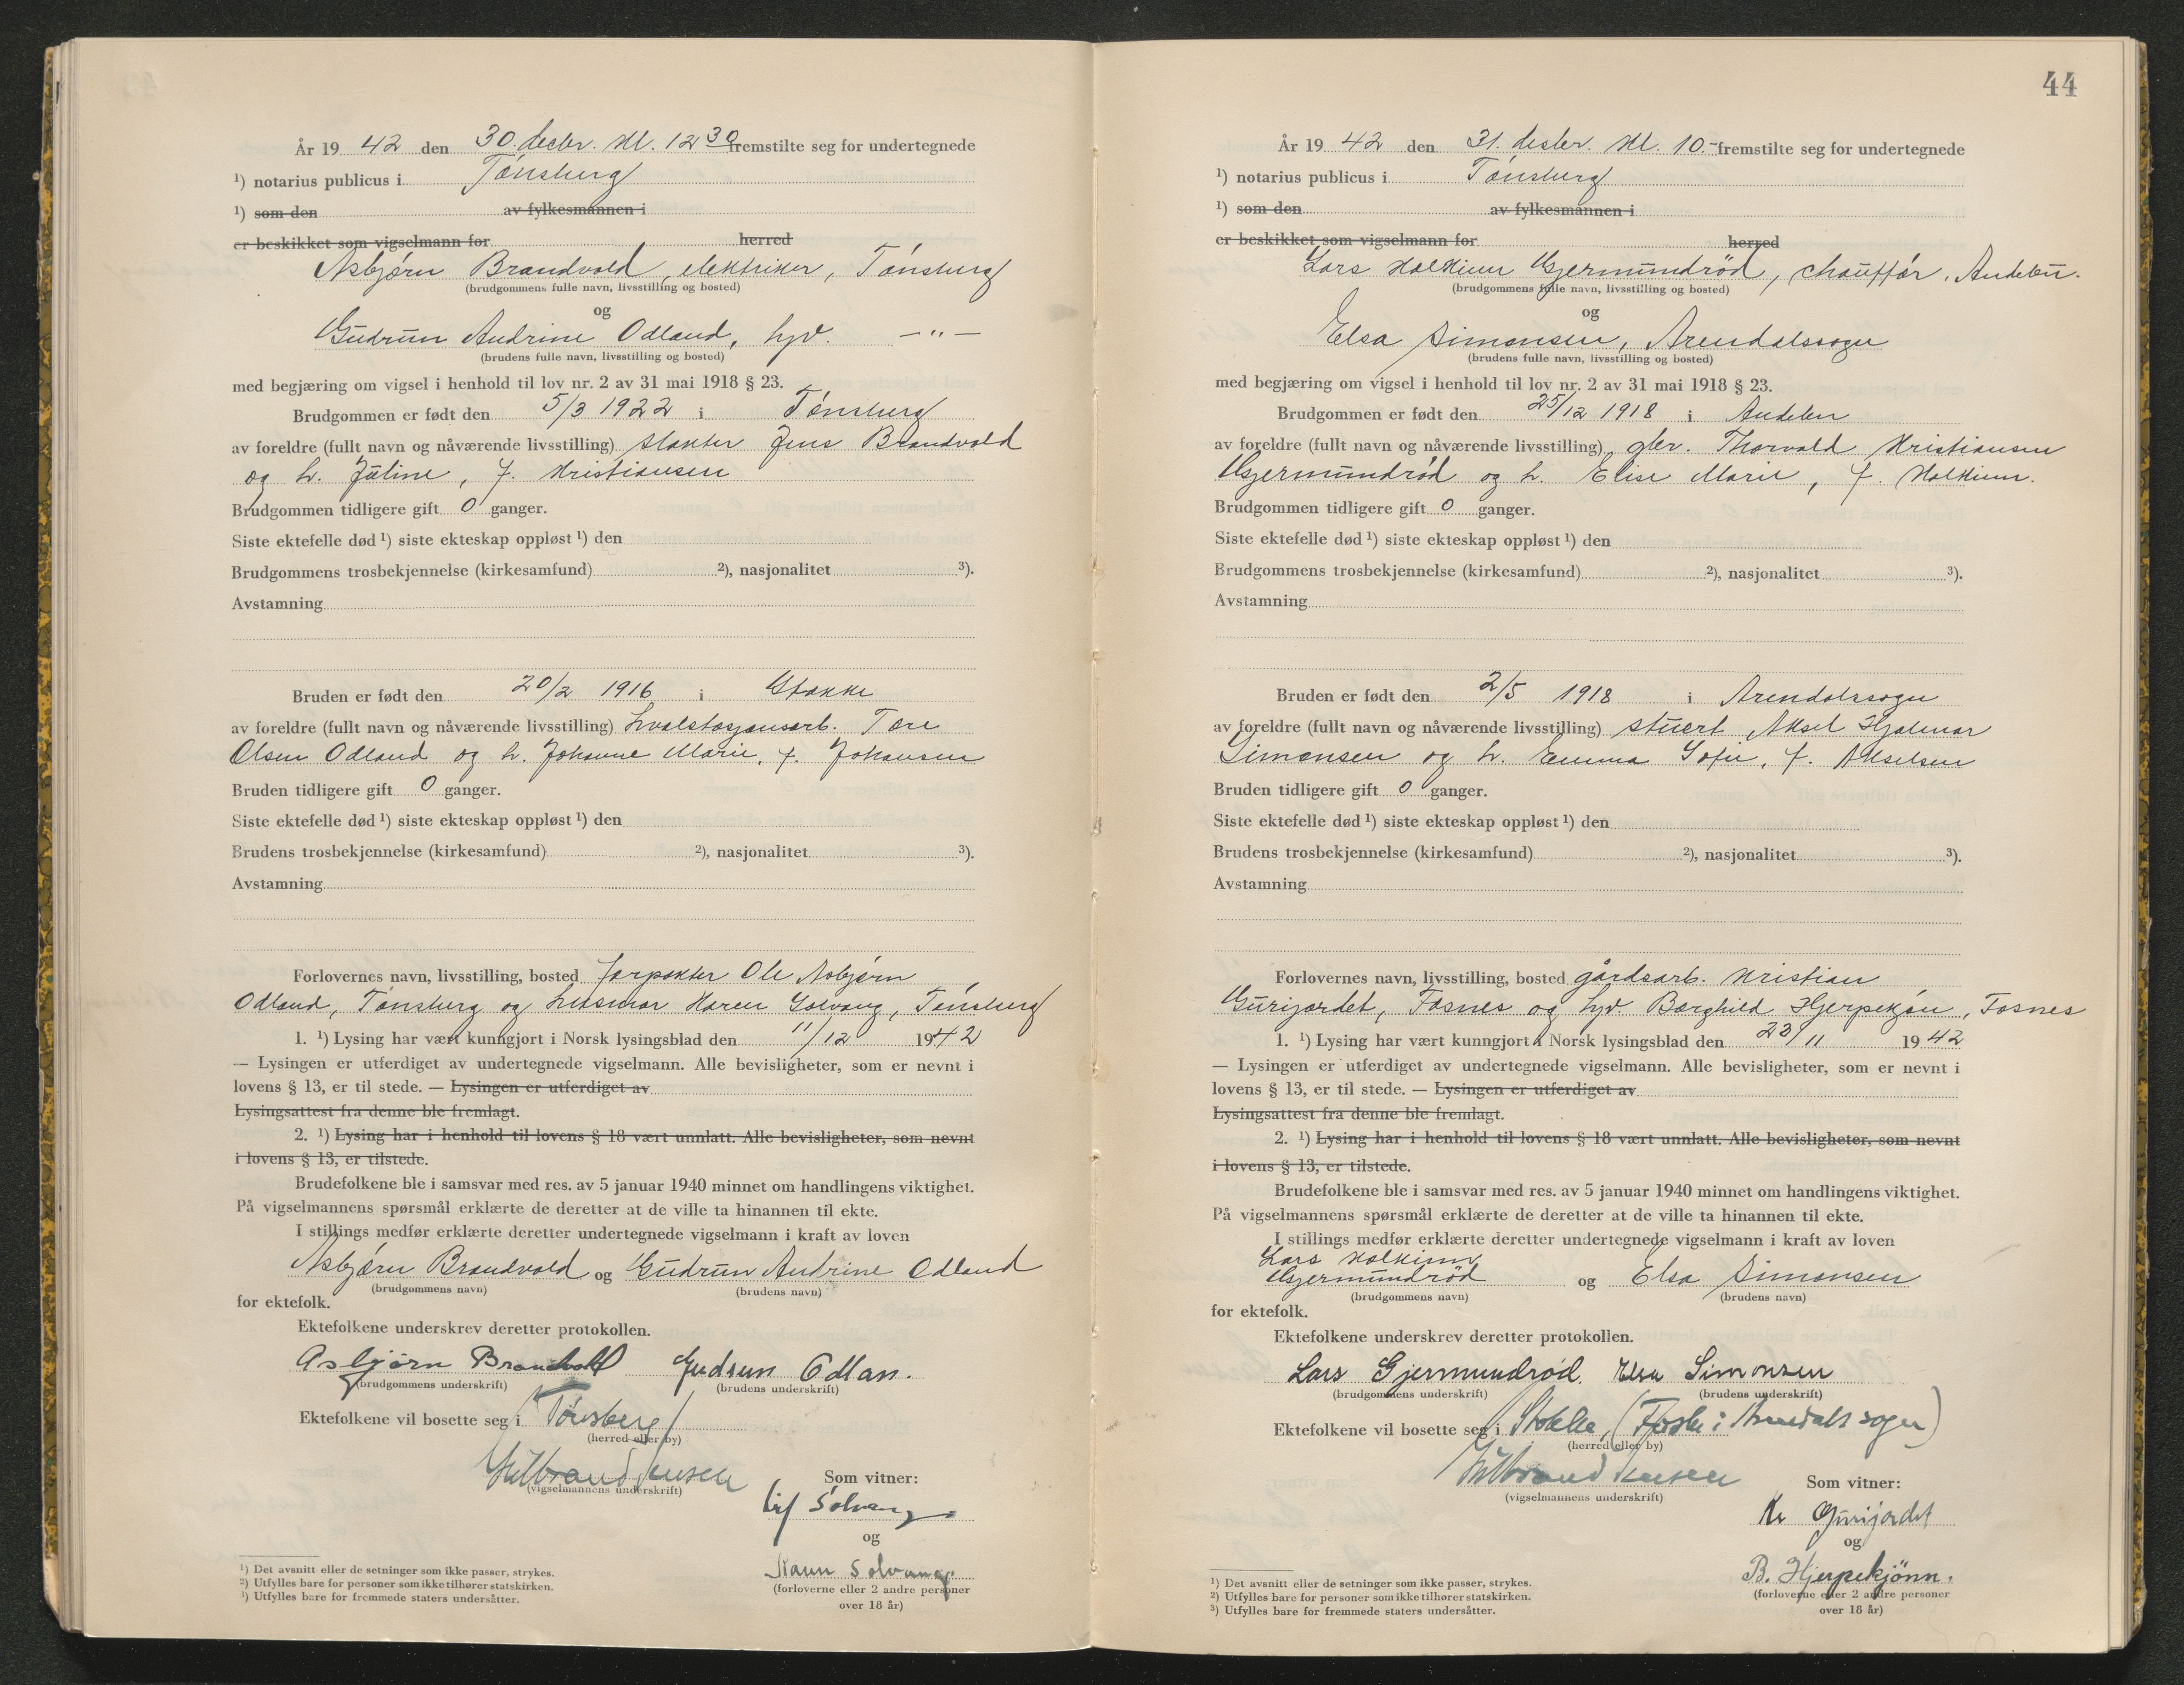 År 19 42 den 30. desbr. kl. 12 30 fremstilte seg for undertegnede
¹) notarius publicus i Tønsberg
¹) som den av fylkesmannen i
er beskikket som vigselmann for herred
Asbjørn Brandvold, elektriker, Tønsberg
(brudgommens fulle navn, livsstilling og bosted)
og
Gudrun Andrine Odland, hjv. — " —
(brudens fulle navn, livsstilling og bosted)
med begjæring om vigsel i henhold til lov nr. 2 av 31 mai 1918 § 23.
Brudgommen er født den 5/3 1922 i Tønsberg
av foreldre (fullt navn og nåværende livsstilling) slakter Jens Brandvold
og h. Juline, f. Kristiansen
Brudgommen tidligere gift 0 ganger.
Siste ektefelle død ¹) siste ekteskap oppløst ¹) den
Brudgommens trosbekjennelse (kirkesamfund) ²), nasjonalitet ³).
Avstamning
Bruden er født den 20/2 1916 i Stokke
av foreldre (fullt navn og nåværende livsstilling) hvalstasjonsarb. Tore
Olsen Odland og h. Johanne Marie, f. Johansen
Bruden tidligere gift 0 ganger.
Siste ektefelle død ¹) siste ekteskap oppløst ¹) den
Brudens trosbekjennelse (kirkesamfund) ²), nasjonalitet ³).
Avstamning
Forlovernes navn, livsstilling, bosted forpakter Ole Asbjørn
Odland, Tønsberg og husmor Karen Solvang, Tønsberg
1. ¹) Lysing har vært kunngjort i Norsk lysingsblad den 11/12 1942
— Lysingen er utferdiget av undertegnede vigselmann. Alle bevisligheter, som er nevnt i
lovens § 13, er til stede. — Lysingen er utferdiget av
Lysingsattest fra denne ble fremlagt.
2. ¹) Lysing har i henhold til lovens § 18 vært unnlatt. Alle bevisligheter, som nevnt
i lovens § 13, er tilstede.
Brudefolkene ble i samsvar med res. av 5 januar 1940 minnet om handlingens viktighet.
På vigselmannens spørsmål erklærte de deretter at de ville ta hinannen til ekte.
I stillings medfør erklærte deretter undertegnede vigselmann i kraft av loven
Asbjørn Brandvold og Gudrun Andrine Odland
(brudgommens navn) (brudens navn)
for ektefolk.
Ektefolkene underskrev deretter protokollen.
Asbjørn Brandvold Gudrun Odlan.
(brudgommens underskrift) (brudens underskrift)
Ektefolkene vil bosette seg i Tønsberg
(herred eller by)
Hilbrand Jensen
(vigselmannens underskrift)
Som vitner:
Leif Solvang
og
Karen Solvang
(forloverne eller 2 andre personer
over 18 år)
¹) Det avsnitt eller de setninger som ikke passer, strykes.
²) Utfylles bare for personer som ikke tilhører statskirken.
³) Utfylles bare for fremmede staters undersåtter.
44
År 19 42 den 31. desbr. kl. 10.- fremstilte seg for undertegnede
¹) notarius publicus i Tønsberg
¹) som den av fylkesmannen i
er beskikket som vigselmann for herred
Lars Holkinn Gjermundrød, chauffør, Andebu.
(brudgommens fulle navn, livsstilling og bosted)
og
Elsa Simonsen, Arendalssogn
(brudens fulle navn, livsstilling og bosted)
med begjæring om vigsel i henhold til lov nr. 2 av 31 mai 1918 § 23.
Brudgommen er født den 25/12 1918 i Andebu
av foreldre (fullt navn og nåværende livsstilling) gbr. Thorvald Kristiansen
Gjermundrød og h. Elise Marie, f. Holkinn.
Brudgommen tidligere gift 0 ganger.
Siste ektefelle død ¹) siste ekteskap oppløst ¹) den
Brudgommens trosbekjennelse (kirkesamfund) ²), nasjonalitet ³).
Avstamning
Bruden er født den 2/5 1918 i Arendalssogn
av foreldre (fullt navn og nåværende livsstilling) stuert Aksel Hjalmar
Simonsen og h. Emma Sofie, f. Akselsen
Bruden tidligere gift 0 ganger.
Siste ektefelle død ¹) siste ekteskap oppløst ¹) den
Brudens trosbekjennelse (kirkesamfund) ²), nasjonalitet ³).
Avstamning
Forlovernes navn, livsstilling, bosted gårdsarb. Kristian
Gurijordet, Fosnes og hjv. Borghild Hjerpekjøn, Fosnes
1. ¹) Lysing har vært kunngjort i Norsk lysingsblad den 23/11 1942
— Lysingen er utferdiget av undertegnede vigselmann. Alle bevisligheter, som er nevnt i
lovens § 13, er til stede. — Lysingen er utferdiget av
Lysingsattest fra denne ble fremlagt.
2. ¹) Lysing har i henhold til lovens § 18 vært unnlatt. Alle bevisligheter, som nevnt
i lovens § 13, er tilstede.
Brudefolkene ble i samsvar med res. av 5 januar 1940 minnet om handlingens viktighet.
På vigselmannens spørsmål erklærte de deretter at de ville ta hinannen til ekte.
I stillings medfør erklærte deretter undertegnede vigselmann i kraft av loven
Lars Holkinn
Gjermundrød og Elsa Simonsen
(brudgommens navn) (brudens navn)
for ektefolk.
Ektefolkene underskrev deretter protokollen.
Lars Gjermundrød. Elsa Simonsen
(brudgommens underskrift) (brudens underskrift)
Ektefolkene vil bosette seg i Stokke, ( i Arendalssogn)
(herred eller by)
Hilbrand Jensen
(vigselmannens underskrift)
Som vitner:
Kr Gurijordet
og
B. Hjerpekjønn.
(forloverne eller 2 andre personer
over 18 år)
¹) Det avsnitt eller de setninger som ikke passer, strykes.
²) Utfylles bare for personer som ikke tilhører statskirken.
³) Utfylles bare for fremmede staters undersåtter.